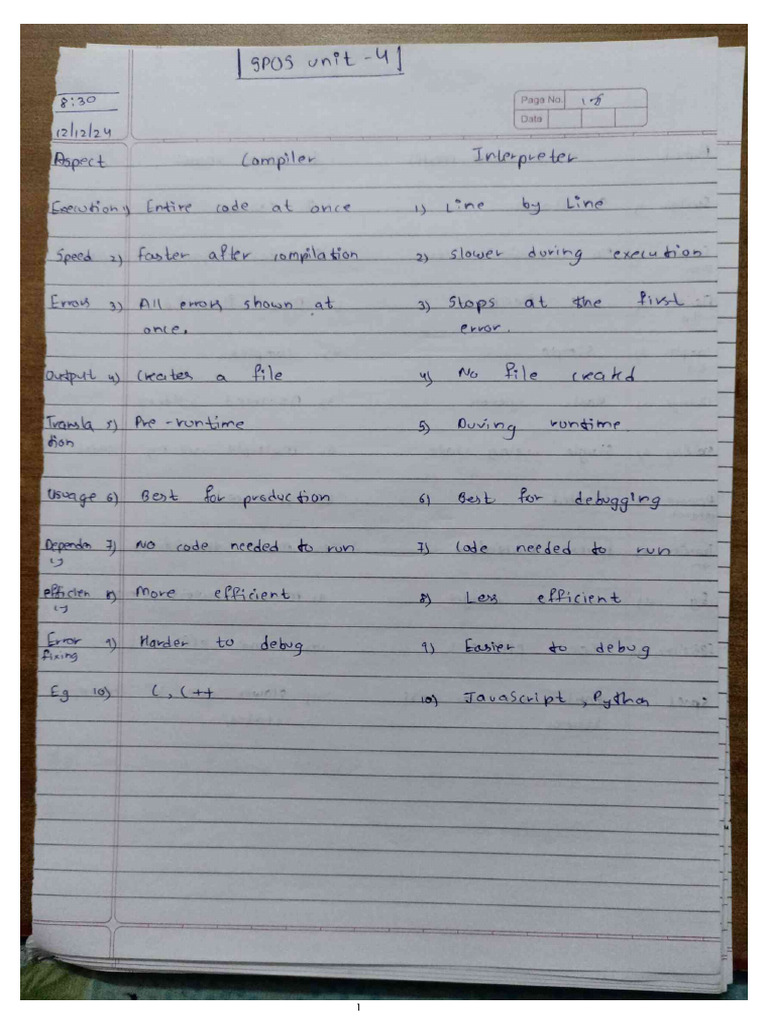 SPOS unit - 4
8:30
Page No.
Date
12/12/24
Aspect Compiler Interpreter
Execution 1) Entire code at once 1) Line by Line
Speed 2) Faster after compilation 2) slower during execution
Errors 3) All errors shown at 3) Stops at the first
once. error.
Output 4) Creates a file 4) No file creatd
Transla 5) Pre-runtime 5) During runtime
tion
Usuage 6) Best for production 6) Best for debugging
Dependen 7) No code needed to run 7) Code needed to run
cy
efficien 8) More efficient 8) Less efficient
cy
Error 9) Harder to debug 9) Easier to debug
fixing
Eg 10) C, C++ 10) JavaScript, Python
1